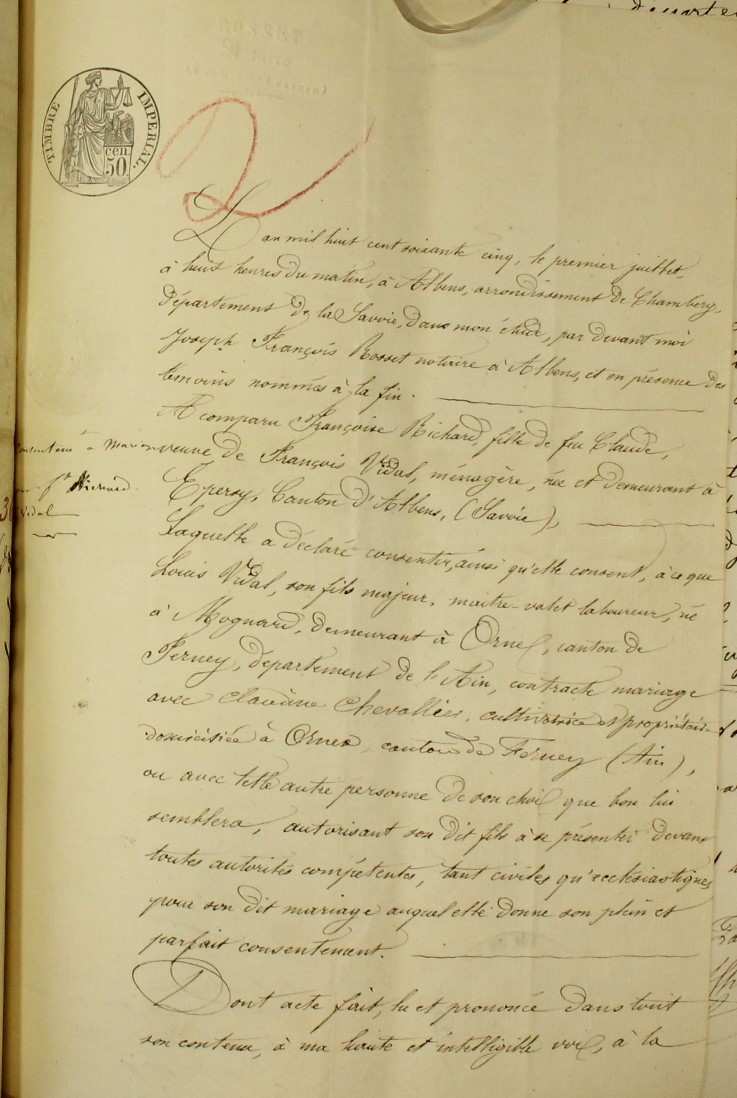 TIMBRE IMPERIAL
cen. 50
2
L'an mil huit cent soixante cinq, le premier juillet,
à huit heures du matin, à Albens, arrondissement de Chambéry,
département de la Savoie, dans mon étude, par devant moi
Joseph François Rosset notaire à Albens, et en présence des
témoins nommés à la fin.
A comparu Françoise Richard, fille de feu Claude,
veuve de François Vidal, ménagère, née et demeurant à
Epersy, Canton d'Albens, (Savoie),
Laquelle a déclaré consentir, ainsi qu'elle consent, à ce que
Louis Vidal, son fils majeur, maitre-valet laboureur, né
à Mognard, demeurant à Ornex, canton de
Ferney, département de l'Ain, contracte mariage
avec Claudine Chevallier, cultivatrice et propriétaire
domiciliée à Ornex, canton de Ferney (Ain),
ou avec telle autre personne de son choix que bon lui
semblera, autorisant son dit fils à se présenter devant
toutes autorités compétentes, tant civiles qu'ecclésiastiques
pour son dit mariage auquel elle donne son plein et
parfait consentement.
Dont acte fait, lu et prononcé dans tout
son contenu, à ma haute et intelligible voix, à la
Richard
Vidal